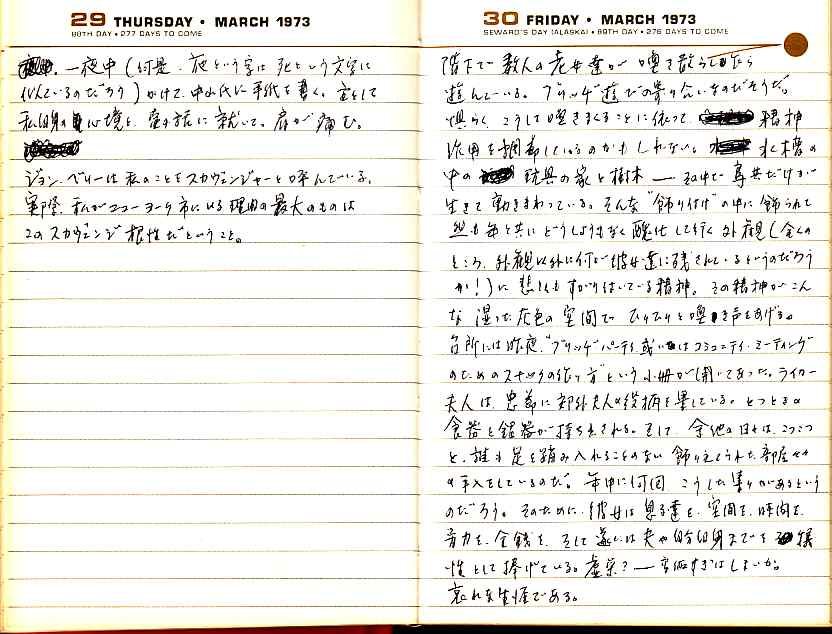 29 THURSDAY • MARCH 1973
88TH DAY • 277 DAYS TO COME
一夜中 (何是、夜という字は死という文字に
似ているのだろう) かけて、中山氏に手紙を書く。主として
私自身の心境と、に就いて。肩が痛む。
ジョン・ベリーは私のことをスカヴェンジャーと呼んでいる。
実際、私がニューヨーク市にいる理由の最大のものは
このスカヴェンジ根性だということ。
30 FRIDAY • MARCH 1973
SEWARD'S DAY (ALASKA) • 89TH DAY • 276 DAYS TO COME
階下で数人の老女達が唾き散らしながら
遊んでいる。ブリッヂ遊びの寄り合いなのだそうだ。
恐らく、こうして喚きまくることに依って、精神
作用を調節しているのかもしれない。水槽の
中の玩具の家と樹木 — その中で毎共だけが
生きて動きまわっている。そんな"飾り付け"の中に飾られて
年と共にどうしようもなく醜化して行く外観 (全くの
ところ、外観以外に何が彼女達に残されているというのだろう
か!) に悲しくもすがりついている精神。その精神がこん
な湿った灰色の空間でひりひりと喚き声をあげる。
台所には昨夜、"ブリッヂパーティ或いはコミュニティ・ミーティング
のためのスナックの作り方"という小冊が開いてあった。ライカー
夫人は、忠節に郊外夫人の役柄を果している。とっときの
食器と銀器が持ち出される。そして、余他の日々は、こつこつ
と、誰も足を踏み入れることのない飾り立てられた部屋々々
の手入をしているのだ。年中に何回こうした集りがあるという
のだろう。そのために、彼女は息子達を、空間を、時間を、
労力を、金銭を、そして遂には夫や自分自身までを犠
性として捧げている。虚栄? — 高価すぎはしまいか。
哀れな生涯である。